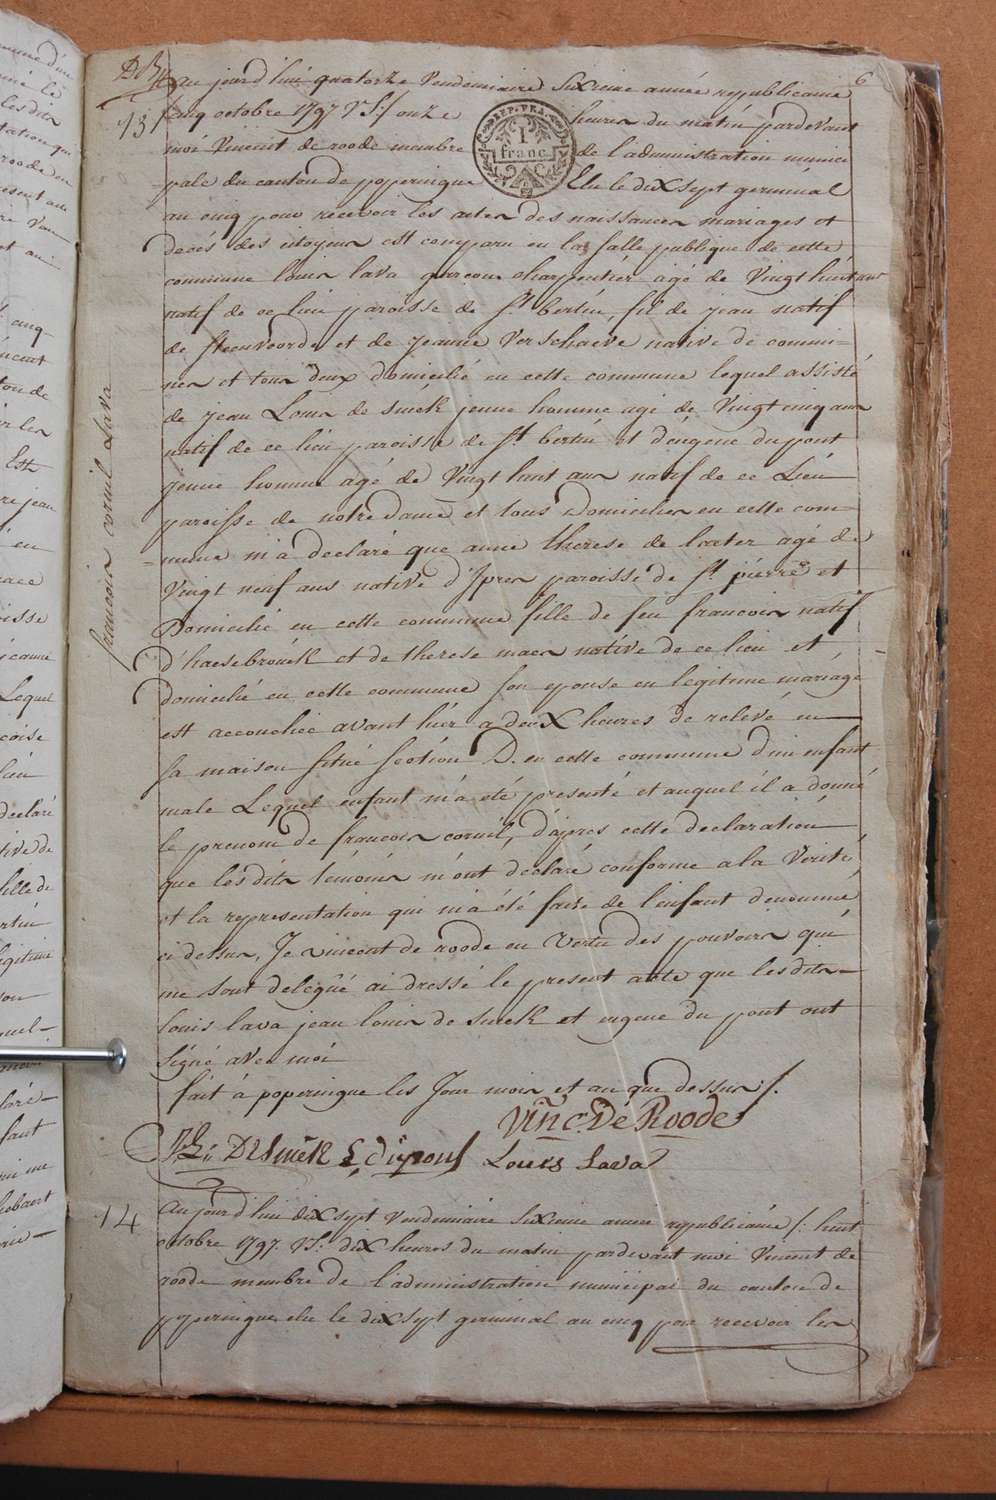 6
13
Au jourd'hui quatorze Vendemiaire Sixieme année republicaine
cinq octobre 1797 V.S:/ onze heures du matin pardevant
moi Vincent de roode membre de l'administration munici
pale du canton de poperingue Elu le dix sept germinal
au cinq pour recevoir les actes des naissances mariages et
decés des citoyens est comparu en la salle publique de cette
commune louis lava garcon charpentier agé de Vingt huit ans
natif de ce lieu paroisse de St bertin, fil de jean natif
de steenvoorde et de jeanne Verschaeve native de commi-
nes et tous deux domicilié en cette commune lequel assisté
de jean Louis de smek jeune homme agé de Vingt cinq ans
natif de ce lieu paroisse de St bertin et d'eugene du pont
jeune homme agé de Vingt huit ans natif de ce Lieu
paroisse de notre dame et tous Domiciliés en cette com-
mune m'a declaré que anne therese de agé de
Vingt neuf ans native d'Ipres paroisse de St pierre et
Domicilié en cette commune fille de feu francois natif
d'haesebrouck et de therese maes native de ce lieu et
domicilié en cette commune son epouse en legitime mariage
est accouchée avant hier a deux heures de relevé en
sa maison situé section D. en cette commune d'un enfant
male Lequel enfant m'a été presenté et auquel il a donné
le prenom de francois cornil, d'apres cette declaration
que les dits témoins m'ont declaré conforme a la Verité
et la representation qui m'a été faite de l'enfant denommé
ci dessus, Je vincent de roode en Vertu des pouvoirs qui
me sont delegué ai dressé le present acte que les dits
louis lava jean louis de smek et eugene du pont ont
signé avec moi
fait à poperingue les Jour mois et an que dessus /.
francois cornil Lava
REP. FRA.
1
franc
Vinc. De Roode
DSmek E dupont Louis Lava
14
Au jourd'hui dix sept Vendemiaire Sixieme année republicaine /: huit
octobre 1797. VS: dix heures du matin pardevant moi Vincent de
roode membre de l'administration municipal du canton de
poperingue elu le dix sept germinal an cinq pour recevoir les